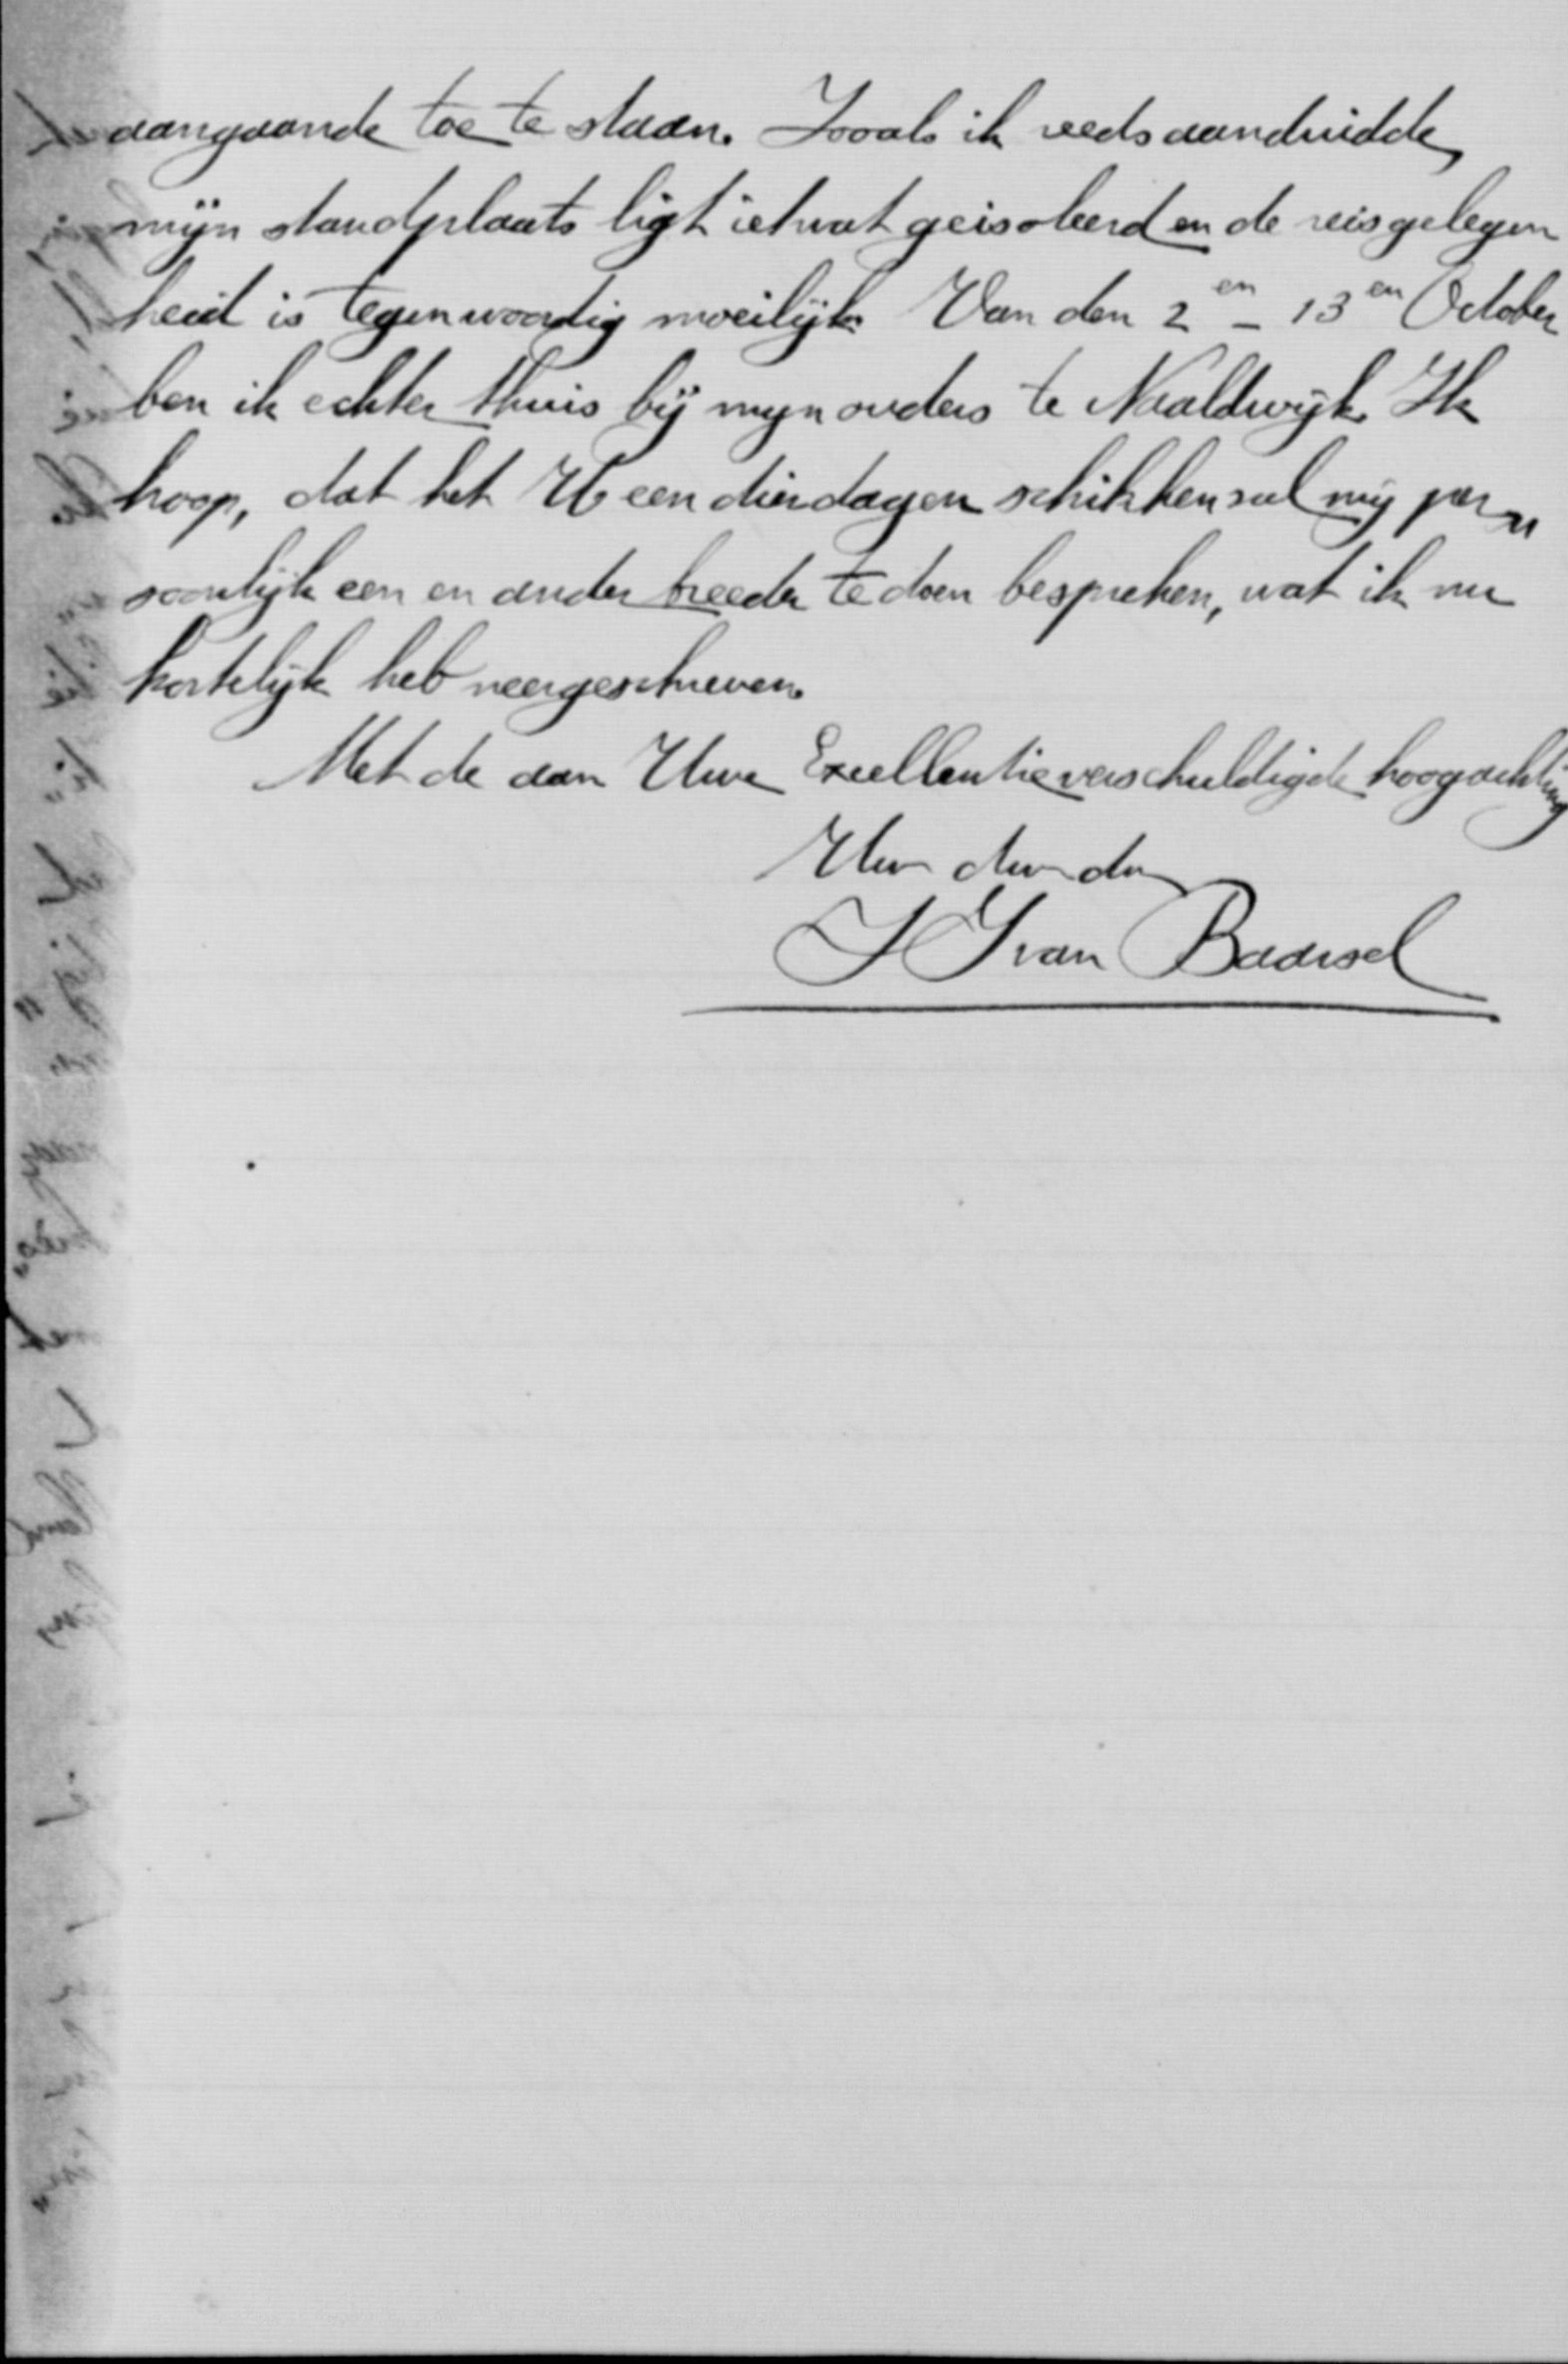 aangaande toe te staan. Zooals ik reeds aanduidde,
mijn standplaats ligt ietwat geisoleerd en de reisgelegen
heid is tegenwoordig moeilijk. Van den 2en – 13en October
ben ik echter thuis bij mijn ouders te Naaldwijk. Ik
hoop, dat het U een dier dagen schikken zal mij per„
soonlijk een en ander breeder te doen bespreken, wat ik nu
kortelijk heb neergeschreven.
Met de aan Uwe Excellentie verschuldigde hoogachting
Uw dw dn
J J van Baarsel